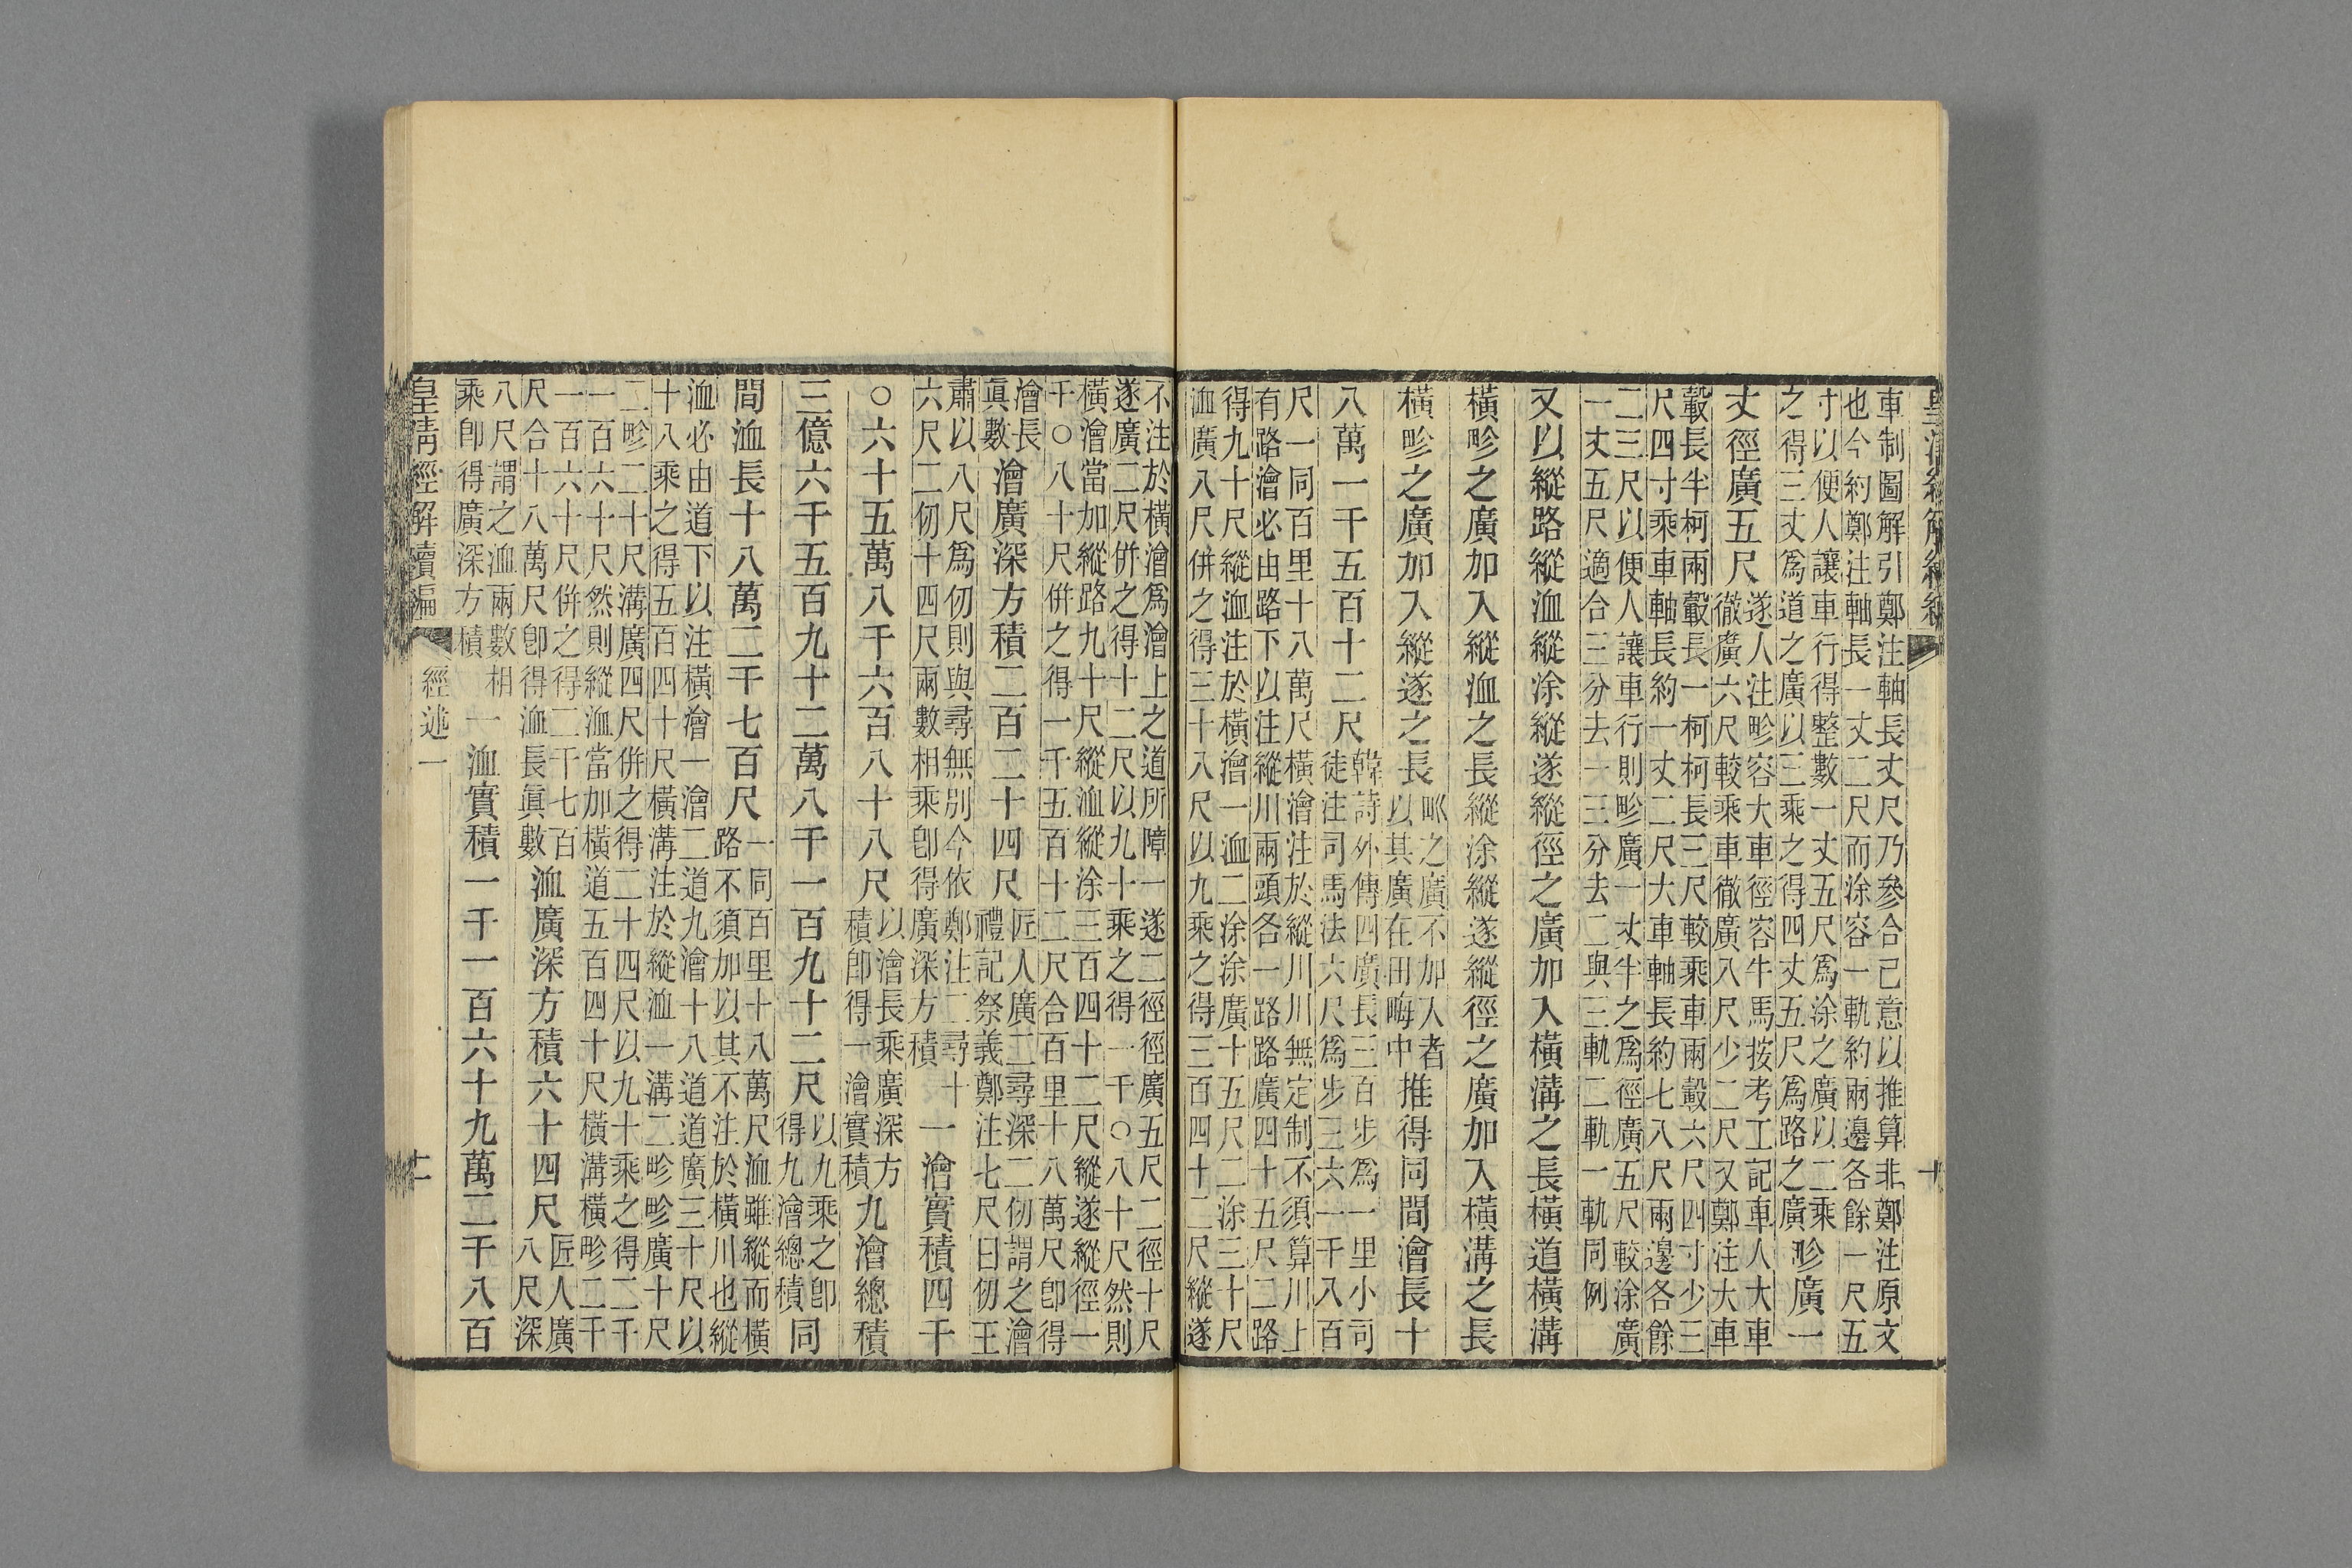 皇清經解續編
十
車制圖解引鄭注軸長丈尺乃參合己意以推算非鄭注原文
也今約鄭注軸長一丈二尺而涂容一軌約兩邊各餘一尺五
寸以便人讓車行得整數一丈五尺爲涂之廣以二乘
之得三丈爲道之廣以三乘之得四丈五尺爲路之廣
畛廣一
丈徑廣五尺
遂人注畛容大車徑容牛馬按考工記車人大車
徹廣六尺較乘車徹廣八尺少二尺又鄭注大車
轂長半柯兩轂長一柯柯長三尺較乘車兩轂六尺四寸少三
尺四寸乘車軸長約一丈二尺大車軸長約七八尺兩邊各餘
二三尺以便人讓車行則畛廣一丈半之爲徑廣五尺較涂廣
一丈五尺適合三分去一三分去二與三軌二軌一軌同例
又以縱路縱洫縱涂縱遂縱徑之廣加入橫溝之長橫道橫溝
橫畛之廣加入縱洫之長縱涂縱遂縱徑之廣加入橫溝之長
橫畛之廣加入縱遂之長
㽗之廣不加入者
以其廣在田畮中
推得同間澮長十
八萬一千五百十二尺
韓詩外傳四廣長三百步爲一里小司
徒注司馬法六尺爲步三六一千八百
尺一同百里十八萬尺橫澮注於縱川川無定制不須算川上
有路澮必由路下以注縱川兩頭各一路路廣四十五尺二路
得九十尺縱洫注於橫澮一洫二涂涂廣十五尺二涂三十尺
洫廣八尺併之得三十八尺以九乘之得三百四十二尺縱遂
不注於橫澮爲澮上之道所障一遂二徑徑廣五尺二徑十尺
遂廣二尺併之得十二尺以九十乘之得一千○八十尺然則
橫澮當加縱路九十尺縱洫縱涂三百四十二尺縱遂縱徑一
千○八十尺併之得一千五百十二尺合百里十八萬尺卽得
澮長
眞數
澮廣深方積二百二十四尺
匠人廣二尋深二仞謂之澮
禮記祭義鄭注七尺曰仞王
肅以八尺爲仞則與尋無別今依鄭注二尋十
六尺二仞十四尺兩數相乘卽得廣深方積
一澮實積四千
○六十五萬八千六百八十八尺
以澮長乘廣深方
積卽得一澮實積
九澮總積
三億六千五百九十二萬八千一百九十二尺
以九乘之卽
得九澮總積
同
間洫長十八萬二千七百尺
一同百里十八萬尺洫雖縱而橫
路不須加以其不注於橫川也縱
洫必由道下以注橫澮一澮二道九澮十八道道廣三十尺以
十八乘之得五百四十尺橫溝注於縱洫一溝二畛畛廣十尺
二畛二十尺溝廣四尺併之得二十四尺以九十乘之得二千
一百六十尺然則縱洫當加橫道五百四十尺橫溝橫畛二千
一百六十尺併之得二千七百
尺合十八萬尺卽得洫長眞數
洫廣深方積六十四尺
匠人廣
八尺深
八尺謂之洫兩數相
乘卽得廣深方積
一洫實積一千一百六十九萬二千八百
皇清經解續編
經述一
十一